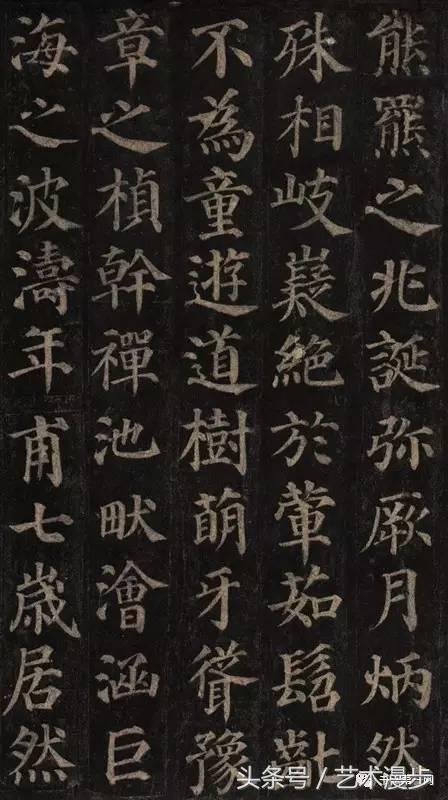 熊羆之兆誕弥厥月炳然
殊相岐嶷絕於葷茹髫齔
不為童遊道樹萌牙聳豫
章之楨幹禪池畎澮涵巨
海之波濤年甫七歲居然
头条号 / 艺术漫步